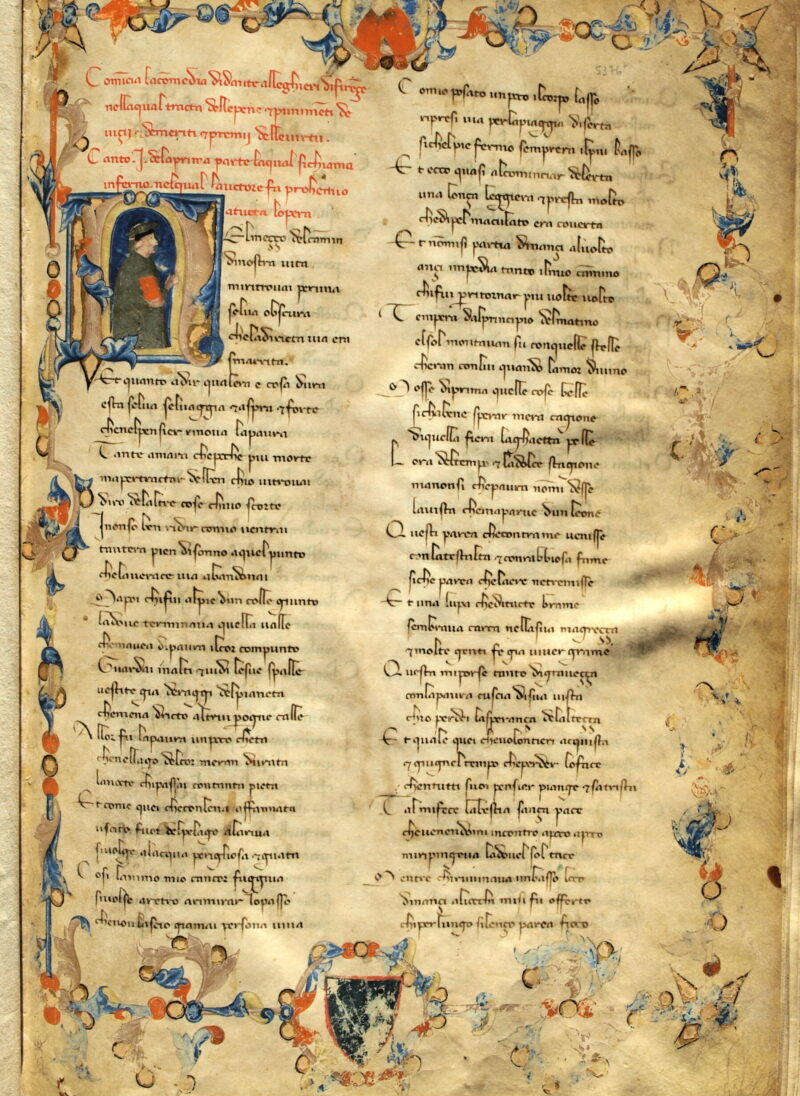 Comincia lacomedia didante alleghieri difirenze
nellaqual tracta dellepene et punimenti de
uitii et demeriti et premij delleuirtu.
Canto .I. dela prima parte laqual sichiama
inferno nelqual lauctore fa prohemio
atucta lopera
NElmezzo delcamin
dinostra uita
miritrouai peruna
selua obscura
cheladiricta uia era
smarrita.
Et quanto adir qualera e cosa dura
esta selua seluaggia et aspra et forte
chenelpensier rinoua lapaura
Tante amara chepoche piu morte
mapertractar delben chio uitrouai
diro delaltre cose chiuio scorte
Inonso ben ridir comio uentrai
tantera pien disonno aquel punto
chelauerace uia abandonai
Mapoi chifui alpie dun colle giunto
ladoue terminaua quella ualle
chemauea dipaura ilcor compunto
Guardai inalti et uidi lesue spalle
uestite gia deraggi delpianeta
chemena dricto altrui pogne calle
Allor fu lapaura unpoco cheta
chenellago delcor meran durata
lanocte chipassai contanta pieta
Et come quei checonlena affannata
uscito fuor delpelago alariua
siuolge alacqua perigliosa et guata
Cosi lanimo mio cancor fuggiua
siuolse aretro arimirar lopasso
chenon lascio giamai persona uiua
Comio posato unpoco ilcorpo lasso
ripresi uia perlapiaggia diserta
sichelpie fermo semprera ilpiu basso
Et ecco quasi alcominciar delerta
una lonza leggiera et presta molto
chedipel maculato era couerta
Et nonmisi partia dinanzi aluolto
anzi impedia tanto ilmio camino
chifui perritornar piu uolte uolto
Tempera dalprincipio delmatino
elsol montauan su conquelle stelle
cheran conlui quando lamor diuino
Mosse diprima quelle cose belle
sichabene sperar mera cagione
diquella fiera lagaetta pelle
Lora deltempo et ladolce stagione
manonsi chepaura nonmi desse
lauista chemaparue dun leone
Questi parea checontrame uenisse
conlatestalta et conrabbiosa fame
siche parea chelaere netremisse
Et una lupa cheditucte brame
sembraua carca nellasua magrezza
et molte genti fe gia uiuer grame
Questa miporse tanto digrauezza
conlapaura cuscia disua uista
chio perdei lasperanza delaltezza
Et quale quei cheuolontieri acquista
et giugnel tempo cheperder loface
chentutti suoi pensier piange et satrista
Tal mifece labestia sanza pace
cheuenendomi incontro apoco apoco
miripingeua ladouel sol tace
Mentre chiruuinaua inbasso loco
dinanzi aliocchi misi fu offerto
chiperlungo silenzo parea fioco